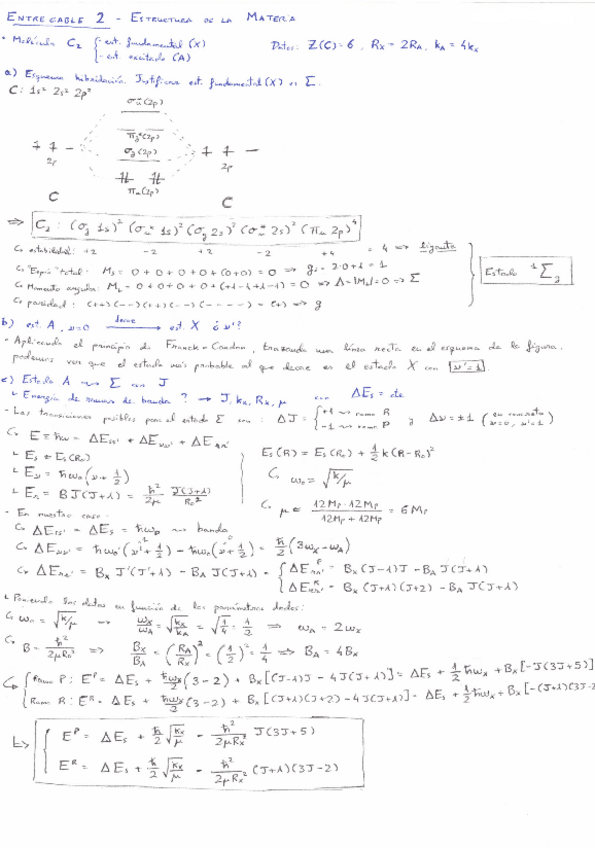 ENTREGABLE 2 - ESTRUCTURA DE LA MATERIA
· Molécula C₂ { - est. fundamental (X) Datos: Z(C)=6, Rx = 2RA, kA = 4kx
- est. excitado (A)
a) Esquema hibridación. Justificar est. fundamental (X) es Σ.
C: 1s² 2s² 2p²
σu*(2p)
πg*(2p)
σg(2p)
2p
2p
πu(2p)
C
C
⇒ C₂: (σg 1s)² (σu* 1s)² (σg 2s)² (σu* 2s)² (πu 2p)⁴
estabilidad: +2 -2 +2 -2 +4 = 4 ⇒ ligante
"Espín" total: Ms = 0+0+0+0+(0+0) = 0 ⇒ gs = 2·0+1 = 1
Momento angular: ML = 0+0+0+0+(+1-1+1-1) = 0 ⇒ Λ = |ML| = 0 ⇒ Σ
Estado ¹Σg
paridad: (++)(--)(++)(--)(----) = (+) ⇒ g
b) est. A, v=0 decae → est. X ¿v'?
· Aplicando el principio de Franck-Condon, trazando una línea recta en el esquema de la figura,
podemos ver que el estado más probable al que decae es el estado X con v'=1.
c) Estado A ⇝ Σ con J
Energía de ramas de banda? → J, kx, Rx, μ con ΔEs = cte
- Las transiciones posibles para el estado Σ son: ΔJ = { +1 ⇝ rama R y Δv = ±1 (en concreto
-1 ⇝ rama P v=0, v'=1)
E = ħω = ΔEss' + ΔEvv' + ΔErr'
Es = Es(R₀)
Ev = ħω₀(v + 1/2)
Er = BJ(J+1) = ħ²/2μ J(J+1)/R₀²
Es(R) = Es(R₀) + 1/2 k(R-R₀)²
ω₀ = √(k/μ)
μ = 12Mp·12Mp / 12Mp+12Mp = 6Mp
- En nuestro caso:
ΔEss' = ΔEs = ħω₀ ⇝ banda
ΔEvv' = ħωx(v' + 1/2) - ħωA(v + 1/2) = ħ/2 (3ωx - ωA)
ΔErr' = Bx J'(J'+1) - BA J(J+1) = { ΔE^P rr' = Bx (J-1)J - BA J(J+1)
ΔE^R rr' = Bx (J+1)(J+2) - BA J(J+1)
Poniendo los datos en función de los parámetros dados:
ω₀ = √(k/μ) ⇝ ωx/ωA = √(kx/kA) = √(1/4) = 1/2 ⇒ ωA = 2ωx
B = ħ²/2μR₀² ⇒ Bx/BA = (RA/Rx)² = (1/2)² = 1/4 ⇒ BA = 4Bx
Rama P: E^P = ΔEs + ħωx/2 (3-2) + Bx[(J-1)J - 4J(J+1)] = ΔEs + 1/2 ħωx + Bx[-J(3J+5)]
Rama R: E^R = ΔEs + ħωx/2 (3-2) + Bx[(J+1)(J+2) - 4J(J+1)] = ΔEs + 1/2 ħωx + Bx[-(J+1)(3J-2
E^P = ΔEs + ħ/2 √(kx/μ) - ħ²/2μRx² J(3J+5)
E^R = ΔEs + ħ/2 √(kx/μ) - ħ²/2μRx² (J+1)(3J-2)